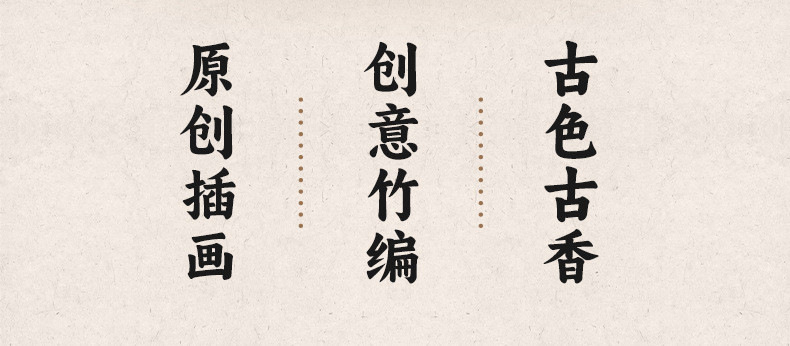 古色古香
创意竹编
原创插画